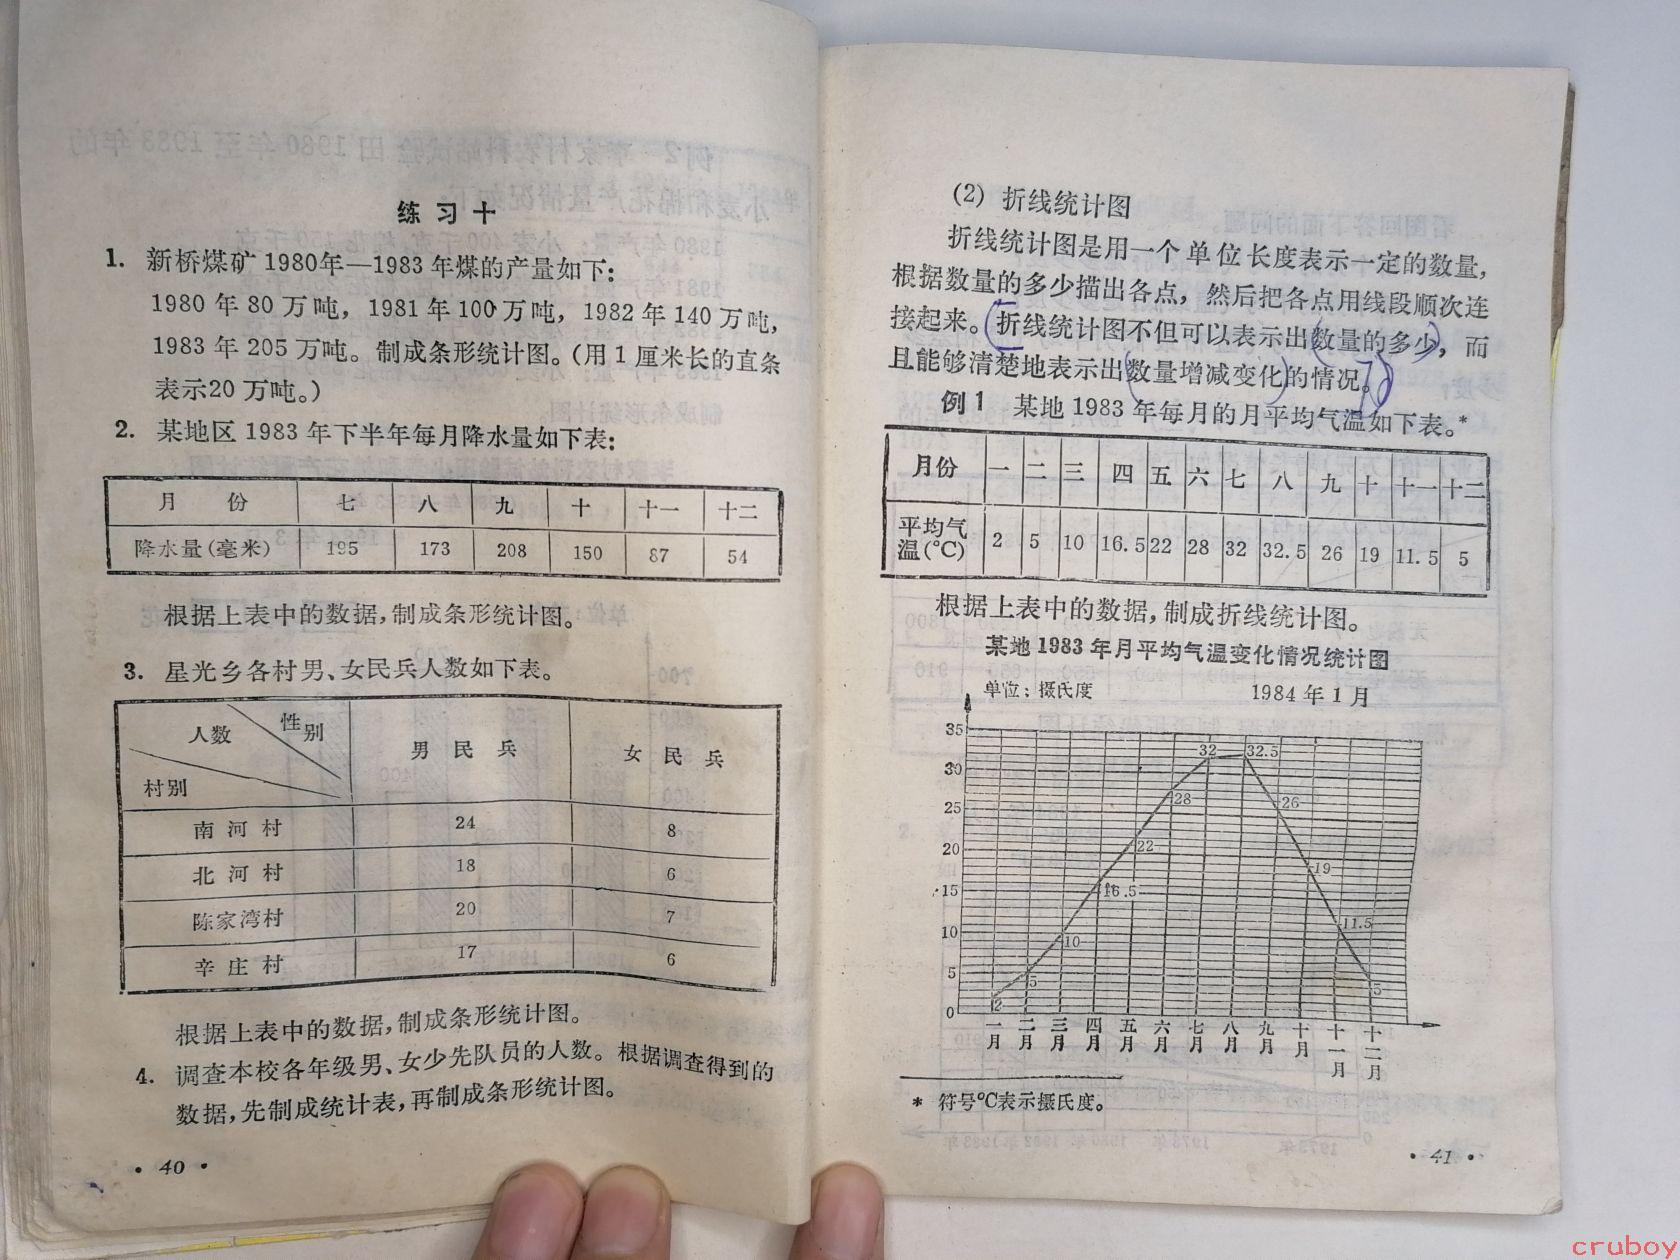 练习十
1. 新桥煤矿1980年—1983年煤的产量如下:
1980年80万吨, 1981年100万吨, 1982年140万吨,
1983年205万吨。制成条形统计图。(用1厘米长的直条
表示20万吨。)
2. 某地区1983年下半年每月降水量如下表:
月份 七 八 九 十 十一 十二
降水量(毫米) 195 173 208 150 87 54
根据上表中的数据,制成条形统计图。
3. 星光乡各村男、女民兵人数如下表。
人数 性别 村别 男民兵 女民兵
南河村 24 8
北河村 18 6
陈家湾村 20 7
辛庄村 17 6
根据上表中的数据,制成条形统计图。
4. 调查本校各年级男、女少先队员的人数。根据调查得到的
数据,先制成统计表,再制成条形统计图。
· 40 ·
(2) 折线统计图
折线统计图是用一个单位长度表示一定的数量,
根据数量的多少描出各点, 然后把各点用线段顺次连
接起来。折线统计图不但可以表示出数量的多少, 而
且能够清楚地表示出数量增减变化的情况。
例1 某地1983年每月的月平均气温如下表。*
月份 一 二 三 四 五 六 七 八 九 十 十一 十二
平均气温(°C) 2 5 10 16.5 22 28 32 32.5 26 19 11.5 5
根据上表中的数据,制成折线统计图。
某地1983年月平均气温变化情况统计图
单位:摄氏度 1984年1月
35
30
25
20
15
10
5
0
2 5 10 16.5 22 28 32 32.5 26 19 11.5 5
一月 二月 三月 四月 五月 六月 七月 八月 九月 十月 十一月 十二月
* 符号°C表示摄氏度。
· 41 ·
cruboy